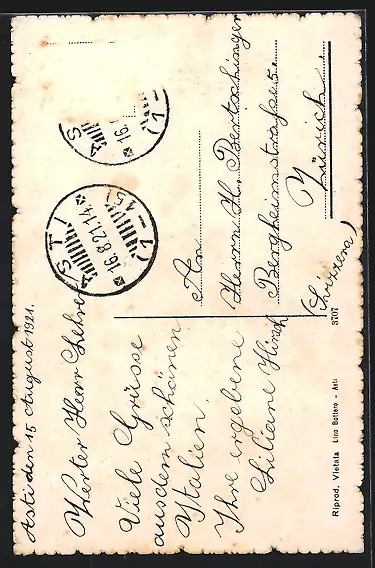 Asti den 15 August 1921.
Werter Herr Lehrer
Viele Grüsse
aus dem schönen
Italien.
Ihre ergebene
Liliane Hirsch
An
Herrn H. Bertschinger
Bergheimstrasse 5.
Zürich
(Svizzera)
3707
Riprod. Vietata Lino Bottero - Asti
ASTI
16.8.21.14
(1-15)
AS
16.
(1-